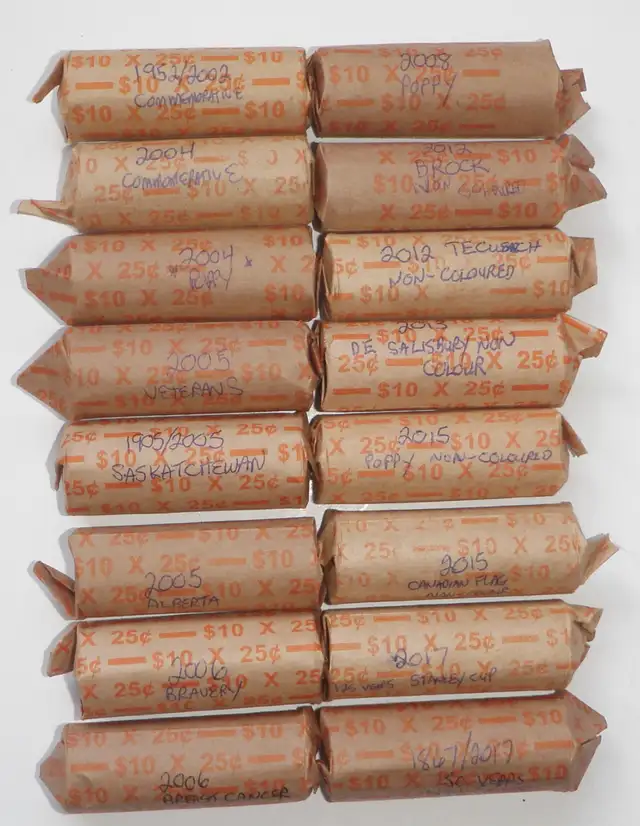 $10 X 25¢ $10
1952/2002
COMMEMORATIVE
$10 X 25¢
2004
COMMOMERATIVE
$10 X 25¢
2004
* POPPY *
$10 X 25¢
2005
VETERANS
$10 X 25¢
1905/2005
SASKATCHEWAN
$10 X 25¢
2005
ALBERTA
$10 X 25¢
2006
BRAVERY
$10 X 25¢
2006
BREAST CANCER
$10 X 25¢
2008
POPPY
$10 X 25¢
2012
BROCK
NON
$10 X 25¢
2012 TECUMSEH
NON-COLOURED
$10 X 25¢
2013
DE SALISBURY NON
COLOUR
$10 X 25¢
2015
POPPY NON-COLOURED
$10 X 25¢
2015
CANADIAN FLAG
$10 X 25¢
2017
125 YEARS STANLEY CUP
$10 X 25¢
1867/2017
150 YEARS
$10 X 25¢